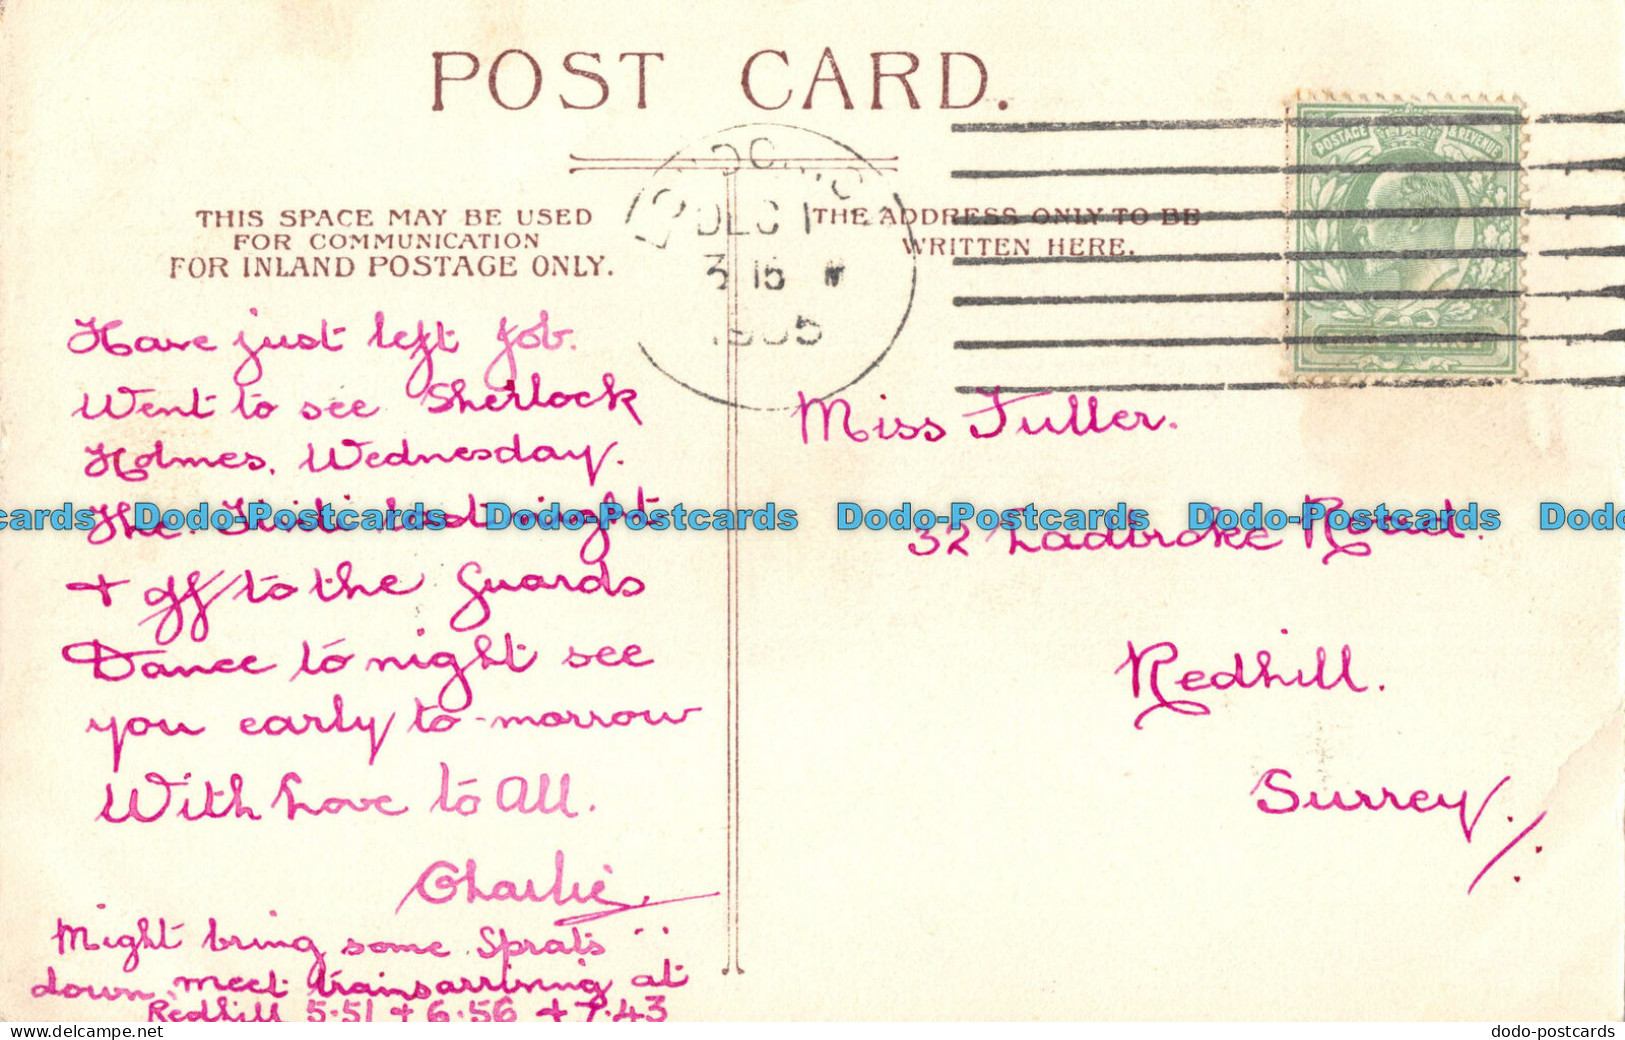 POST CARD.
THIS SPACE MAY BE USED
FOR COMMUNICATION
FOR INLAND POSTAGE ONLY.
THE ADDRESS ONLY TO BE
WRITTEN HERE.
POSTAGE & REVENUE
DEC 1
3 15
1905
Have just left Job.
Went to see Sherlock
Holmes. Wednesday.
The last night
+ off to the Guards
Dance to night see
you early to-morrow
With Love to All.
Charlie.
Might bring some Sprats
down. meet trains arriving at
Redhill 5.51 + 6.56 + 7.43
Miss Fuller.
32 Ladbroke Road.
Redhill.
Surrey.
Dodo-Postcards Dodo-Postcards Dodo-Postcards Dodo-Postcards
www.delcampe.net
dodo-postcards